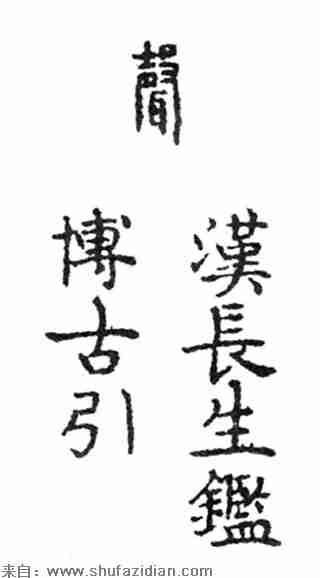 聲
漢長生鑑
博古引
来自：www.shufazidian.com